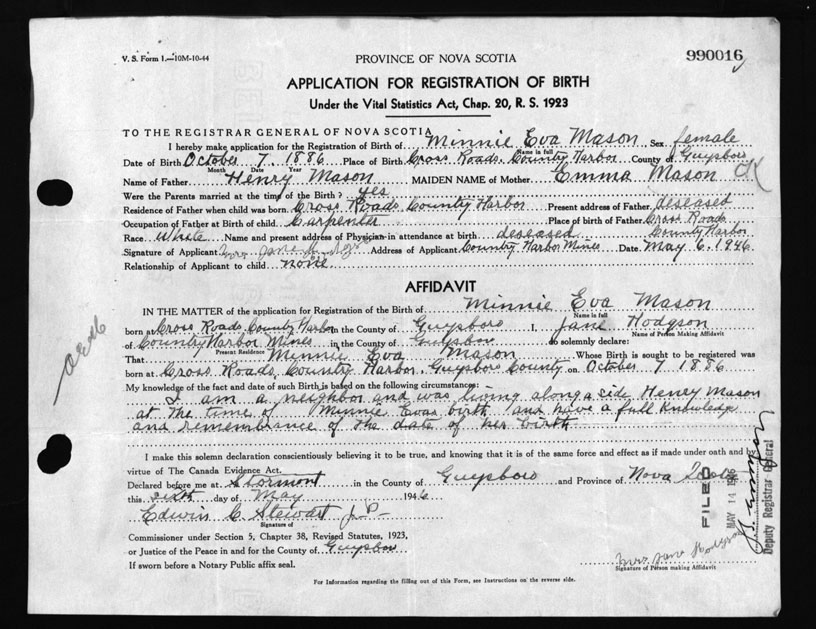 V. S. Form 1.—10M-10-44
PROVINCE OF NOVA SCOTIA
990016
APPLICATION FOR REGISTRATION OF BIRTH
Under the Vital Statistics Act, Chap. 20, R. S. 1923
TO THE REGISTRAR GENERAL OF NOVA SCOTIA
I hereby make application for the Registration of Birth of Minnie Eva Mason Sex female
Name in full
Date of Birth October 7 1886 Place of Birth Cross Roads Country Harbor County of Guysboro
Month Date Year
Name of Father Henry Mason MAIDEN NAME of Mother Emma Mason OK
Were the Parents married at the time of the Birth? yes
Residence of Father when child was born Cross Roads Country Harbor Present address of Father deseased
Occupation of Father at Birth of child Carpenter Place of birth of Father Cross Roads
Country Harbor
Race White Name and present address of Physician in attendance at birth deseased
Signature of Applicant Mrs Jane Address of Applicant Country Harbor Mines Date May 6. 1946
Relationship of Applicant to child none
AFFIDAVIT
IN THE MATTER of the application for Registration of the Birth of Minnie Eva Mason
Name in full
born at Cross Roads, Country Harbor in the County of Guysboro I, Jane Hodgson
Name of Person Making Affidavit
of Country Harbor Mines in the County of Guysboro do solemnly declare:
Present Residence
That Minnie Eva Mason Whose Birth is sought to be registered was
born at Cross Roads, Country Harbor, Guysboro County on October 7 1886
My knowledge of the fact and date of such Birth is based on the following circumstances: -
I am a neighbor and was living along a side Henry Mason
at the time of Minnie Evas birth and have a full knowledge
and remembrance of the date of her birth
I make this solemn declaration conscientiously believing it to be true, and knowing that it is of the same force and effect as if made under oath and by
virtue of The Canada Evidence Act.
Declared before me at Stormont in the County of Guysboro and Province of Nova Scotia
this sixth day of May 1946
Edwin C Stewart J-P-
Signature of
Commissioner under Section 5, Chapter 38, Revised Statutes, 1923,
or Justice of the Peace in and for the County of Guysboro
If sworn before a Notary Public affix seal.
Mrs Jane Hodgson
Signature of Person making Affidavit
For Information regarding the filling out of this Form, see Instructions on the reverse side.
FILED
MAY 14 1946
Deputy Registrar General